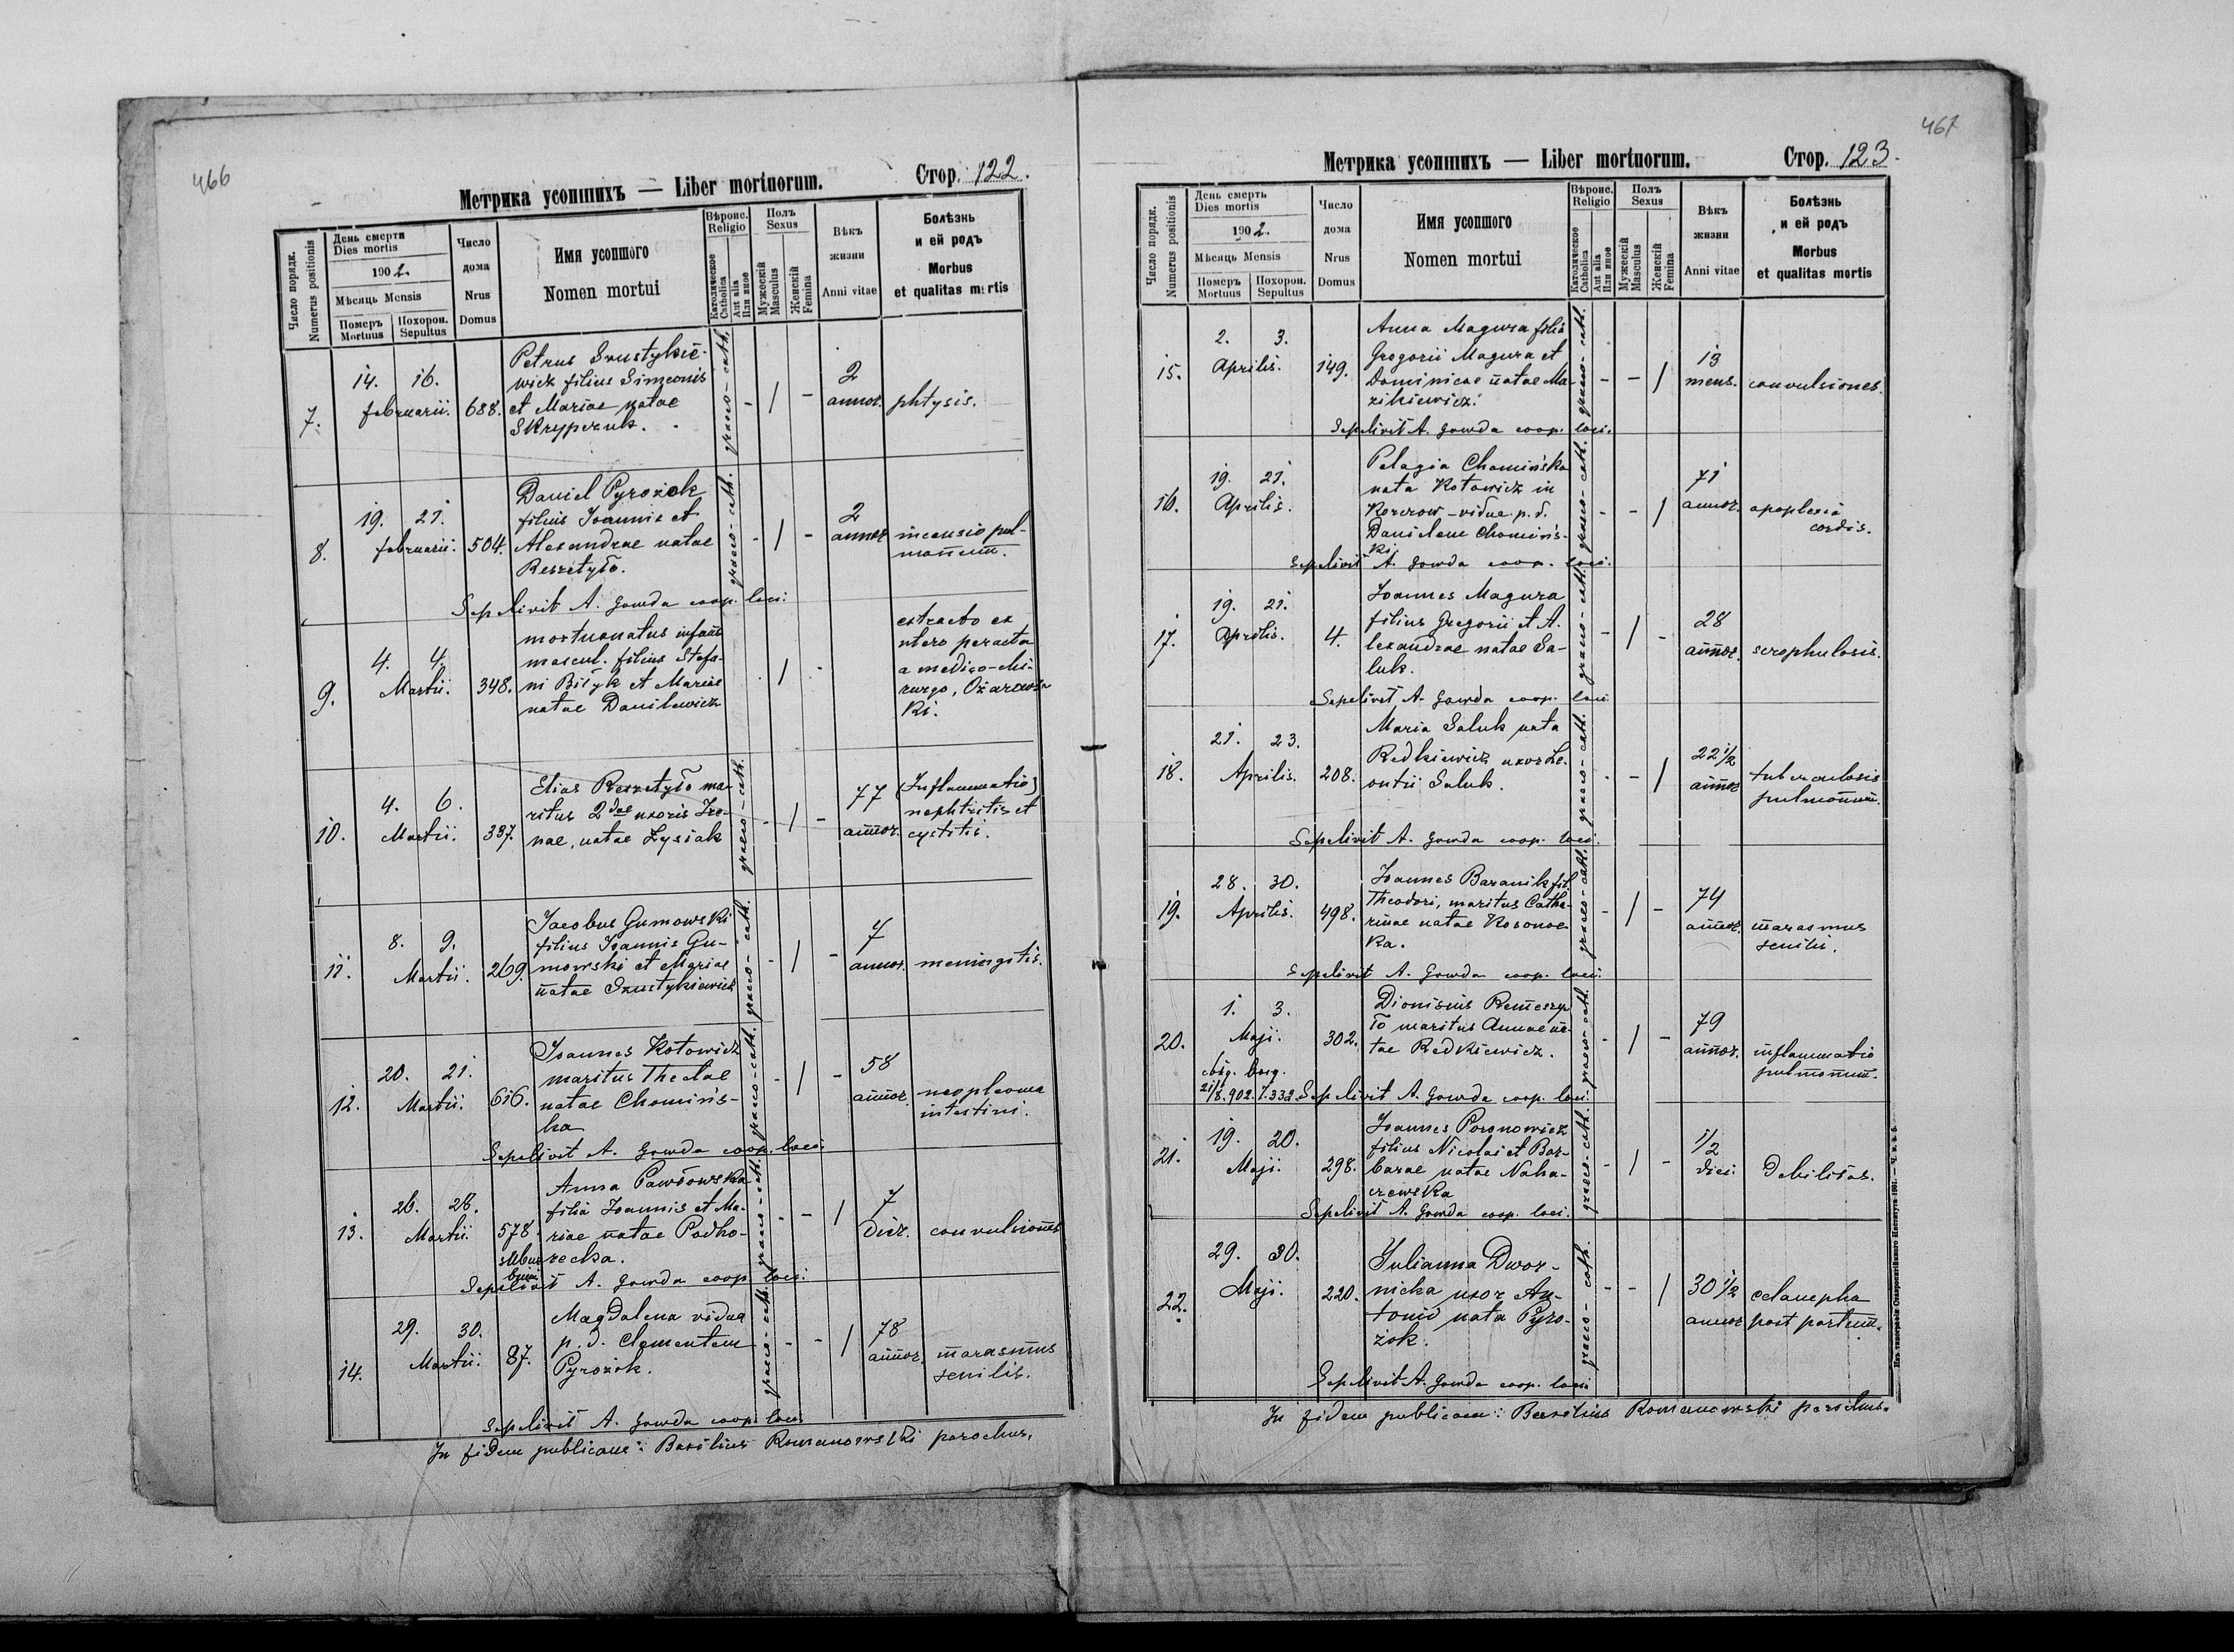 466
Метрика усопшихъ — Liber mortuorum. Стор. 122.
Число порядк. Numerus positionis
День смерти
Dies mortis
1902.
Мѣсяць Mensis
Померъ Mortuus
Похорон. Sepultus
Число дома
Nrus Domus
Имя усопшого
Nomen mortui
Вѣроис. Religio
Католическое Catholica
Aut alia Или иное
Полъ Sexus
Мужескій Masculus
Женскій Femina
Вѣкъ жизни
Anni vitae
Болѣзнь и ей родъ
Morbus et qualitas mortis
7. 14. 16. februarii. 688.
Petrus Snustykie-
wicz filius Simeonis
et Mariae natae
Skrypczuk.
graeco-cath. - / - 2 annor. phtysis.
8. 19. 21. februarii. 504.
Daniel Pyrożok
filius Joannis et
Alexandrae natae
Reszetyło.
graeco-cath. - / - 2 annor. incensio pul-
monum.
Sepelivit A. Gowda coop. loci.
9. 4. 4. Martii. 348.
mortuonatus infans
mascul. filius Stefa-
ni Biłyk et Mariae
natae Danilewicz
/ -
extracto ex
utero peracta
a medico-chi-
rurgo, Ożarows-
ki.
10. 4. 6. Martii. 337.
Elias Reszetyło ma-
ritus 2dae uxoris Ire-
nae, natae Łysiak
graeco-cath. - / - 77 annor.
(Inflammatio)
nephtritis et
cystitis.
11. 8. 9. Martii. 269.
Jacobus Gumowski
filius Joannis Gu-
mowski et Mariae
natae Snustykiewicz
graeco-cath. - / - 7 annor. meningitis.
12. 20. 21. Martii. 616.
Joannes Kotowicz
maritus Theclae
natae Chomins-
ka
graeco-cath. - / - 58 annor. neoplasma
intestini.
Sepelivit A. Gowda coop. loci.
13. 26. 28. Martii. 578.
Anna Pawłowska
filia Joannis et Ma-
riae natae Podho-
recka.
graeco-cath. - - / 7 dier. convulsiones
Sepelivit A. Gowda coop. loci.
14. 29. 30. Martii. 87.
Magdalena vidua
p. d. Clementem
Pyrożok.
graeco-cath. - - / 78 annor. marasmus
senilis.
Sepelivit A. Gowda coop. loci
In fidem publicam: Basilius Romanowski parochus.
467
Метрика усопшихъ — Liber mortuorum. Стор. 123.
Число порядк. Numerus positionis
День смерть
Dies mortis
1902.
Мѣсяць Mensis
Померъ Mortuus
Похорон. Sepultus
Число дома
Nrus Domus
Имя усопшого
Nomen mortui
Вѣроис. Religio
Католическое Catholica
Aut alia Или иное
Полъ Sexus
Мужескій Masculus
Женскій Femina
Вѣкъ жизни
Anni vitae
Болѣзнь и ей родъ
Morbus et qualitas mortis
15. 2. 3. Aprilis. 149.
Anna Magura filia
Gregorii Magura et
Dominicae natae Ma-
zikiewicz.
graeco-cath. - - / 13 mens. convulsiones.
Sepelivit A. Gowda coop. loci.
16. 19. 21. Aprilis.
Pelagia Chomińska
nata Kotowicz in
Korczow - vidua p. d.
Danielem Chomińs-
ki
graeco-cath. - - / 71 annor. apoplexia
cordis.
Sepelivit A. Gowda coop. loci.
17. 19. 21. Aprilis. 4.
Joannes Magura
filius Gregorii et A-
lexandrae natae Sa-
luk.
graeco-cath. - / - 28 annor. scrophulosis.
Sepelivit A. Gowda coop. loci
18. 21. 23. Aprilis. 208.
Maria Saluk nata
Redkiewicz uxor Le-
ontii Saluk.
graeco-cath. - - / 22 1/2 annor tuberculosis
pulmonum.
Sepelivit A. Gowda coop. loci.
19. 28. 30. Aprilis. 498.
Joannes Baranik fil.
Theodori, maritus Catha-
rinae natae Kosonoc-
ka.
graeco-cath. - / - 74 annor. marasmus
senilis.
Sepelivit A. Gowda coop. loci.
20. 1. 3. Maji. 302.
Dionisius Remeszy
ło maritus Annae na-
tae Redkiewicz.
graeco-cath. - / - 79 annor. inflammatio
pulmonum.
21/8.902. 7.332. Sepelivit A. Gowda coop. loci.
21. 19. 20. Maji. 298.
Joannes Poronowicz
filius Nicolai et Bar-
barae natae Naha-
czewska
graeco-cath. - / - 1/2 diei. Debilitas.
Sepelivit A. Gowda coop. loci.
22. 29. 30. Maji. 220.
Julianna Dwor-
nicka uxor An-
tonii nata Pyro-
żok.
graeco-cath. - - / 30 1/2 annor eclampha
post partum.
Sepelivit A. Gowda coop. loci
In fidem publicam: Basilius Romanowski parochus.